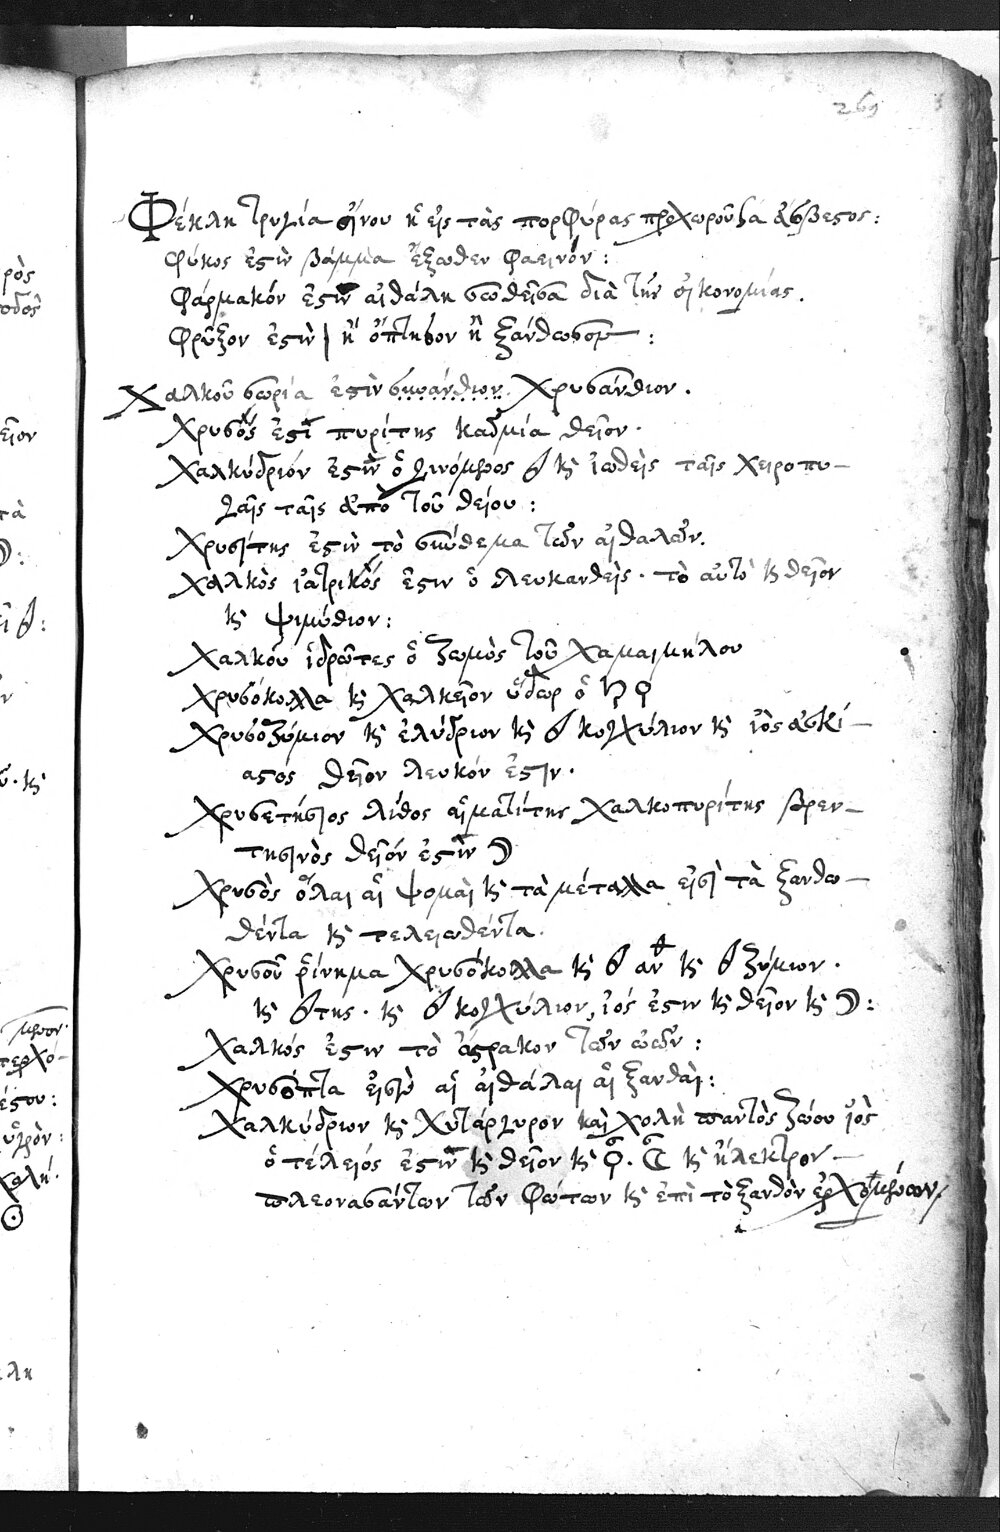 269
Φέκλη τρυγία οἴνου ἡ εἰς τὰς πορφύρας προχωροῦσα ἄσβεστος:
φῦκος ἐστὶν βάμμα ἔξωθεν φαεινόν:
φάρμακόν ἐστιν αἰθάλη σωθεῖσα διὰ τὴν οἰκονομίας.
φρῦξον ἐστὶν ἢ ὄπτησον ἢ ξάνθωσον:
Χαλκοῦ σωρία ἐστὶν σκωράνθιον χρυσάνθιον.
χρυσός ἐστὶ πυρίτης καδμία θεῖον.
χαλκύδριόν ἐστιν ὁ γινόμενος καὶ ἰωθεὶς ταῖς χειροτυ-
γαῖς ταῖς ἀπὸ τοῦ θείου:
χρυσίτης ἐστὶν τὸ σύνθεμα τῶν αἰθαλῶν.
χαλκὸς ἰατρικός ἐστιν ὁ λευκανθείς. τὸ αὐτὸ καὶ θεῖον
καὶ ψιμύθιον:
χαλκοῦ ἱδρῶτες ὁ ζωμὸς τοῦ χαμαιμήλου
χρυσόκολλα καὶ χαλκεῖον ὕδωρ ὁ ♄ ♀
χρυσοζύμιον καὶ ἐλύδριον καὶ κογχύλιον καὶ ἰὸς ἀσκί-
αστος θεῖον λευκόν ἐστιν.
χρυσετήσιος λίθος αἱματίτης χαλκοπυρίτης βρεν-
τησινὸς θεῖόν ἐστιν ☽
χρυσὸς ὅλαι αἱ ψομαὶ καὶ τὰ μέταλλα εἰσὶ τὰ ξανθω-
θέντα καὶ τελειωθέντα.
χρυσοῦ ῥίνημα χρυσόκολλα καὶ καὶ ζύμιον.
καὶ καὶ κογχύλιον, ἰός ἐστιν καὶ θεῖον καὶ ☽:
χαλκός ἐστιν τὸ ὄστρακον τῶν ὠῶν:
χρυσόπτα εἰσὶν αἱ αἰθάλαι αἱ ξανθαί:
χαλκύδριον καὶ χυτάργυρον καὶ χολὴ παντὸς ζώου ἰὸς
ὁ τέλειός ἐστιν καὶ θεῖον καὶ καὶ ἤλεκτρον
πλεονασάντων τῶν φώτων καὶ ἐπὶ τὸ ξανθὸν ἐρχομένων